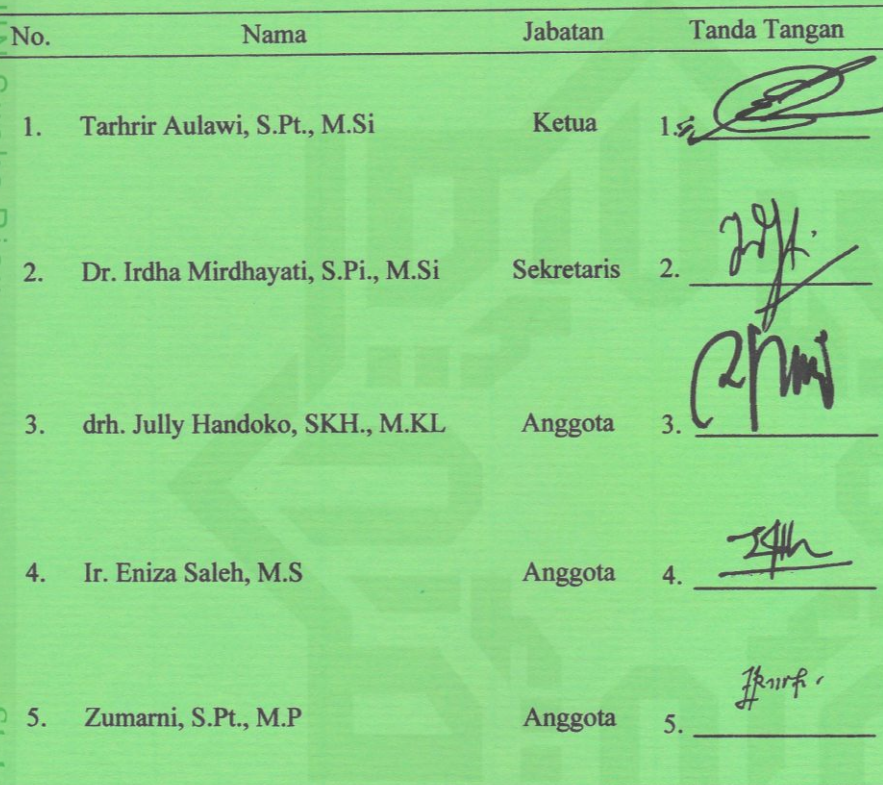 No. Nama Jabatan Tanda Tangan
1. Tarhrir Aulawi, S.Pt., M.Si Ketua 1.
2. Dr. Irdha Mirdhayati, S.Pi., M.Si Sekretaris 2.
3. drh. Jully Handoko, SKH., M.KL Anggota 3.
4. Ir. Eniza Saleh, M.S Anggota 4.
5. Zumarni, S.Pt., M.P Anggota 5.